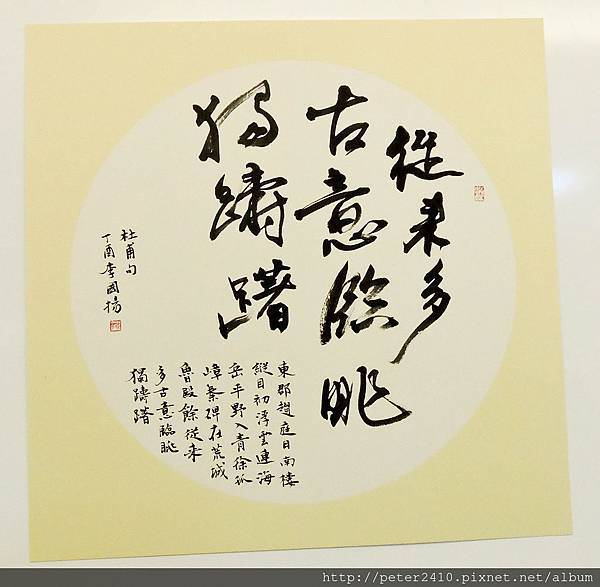 從來多
古意臨眺
獨躊躇
東郡趨庭日南樓
縱目初浮雲連海
岳平野入青徐孤
嶂秦碑在荒城
魯殿餘從來
多古意臨眺
獨躊躇
杜甫句
丁酉李國揚
http://peter2410.pixnet.net/album